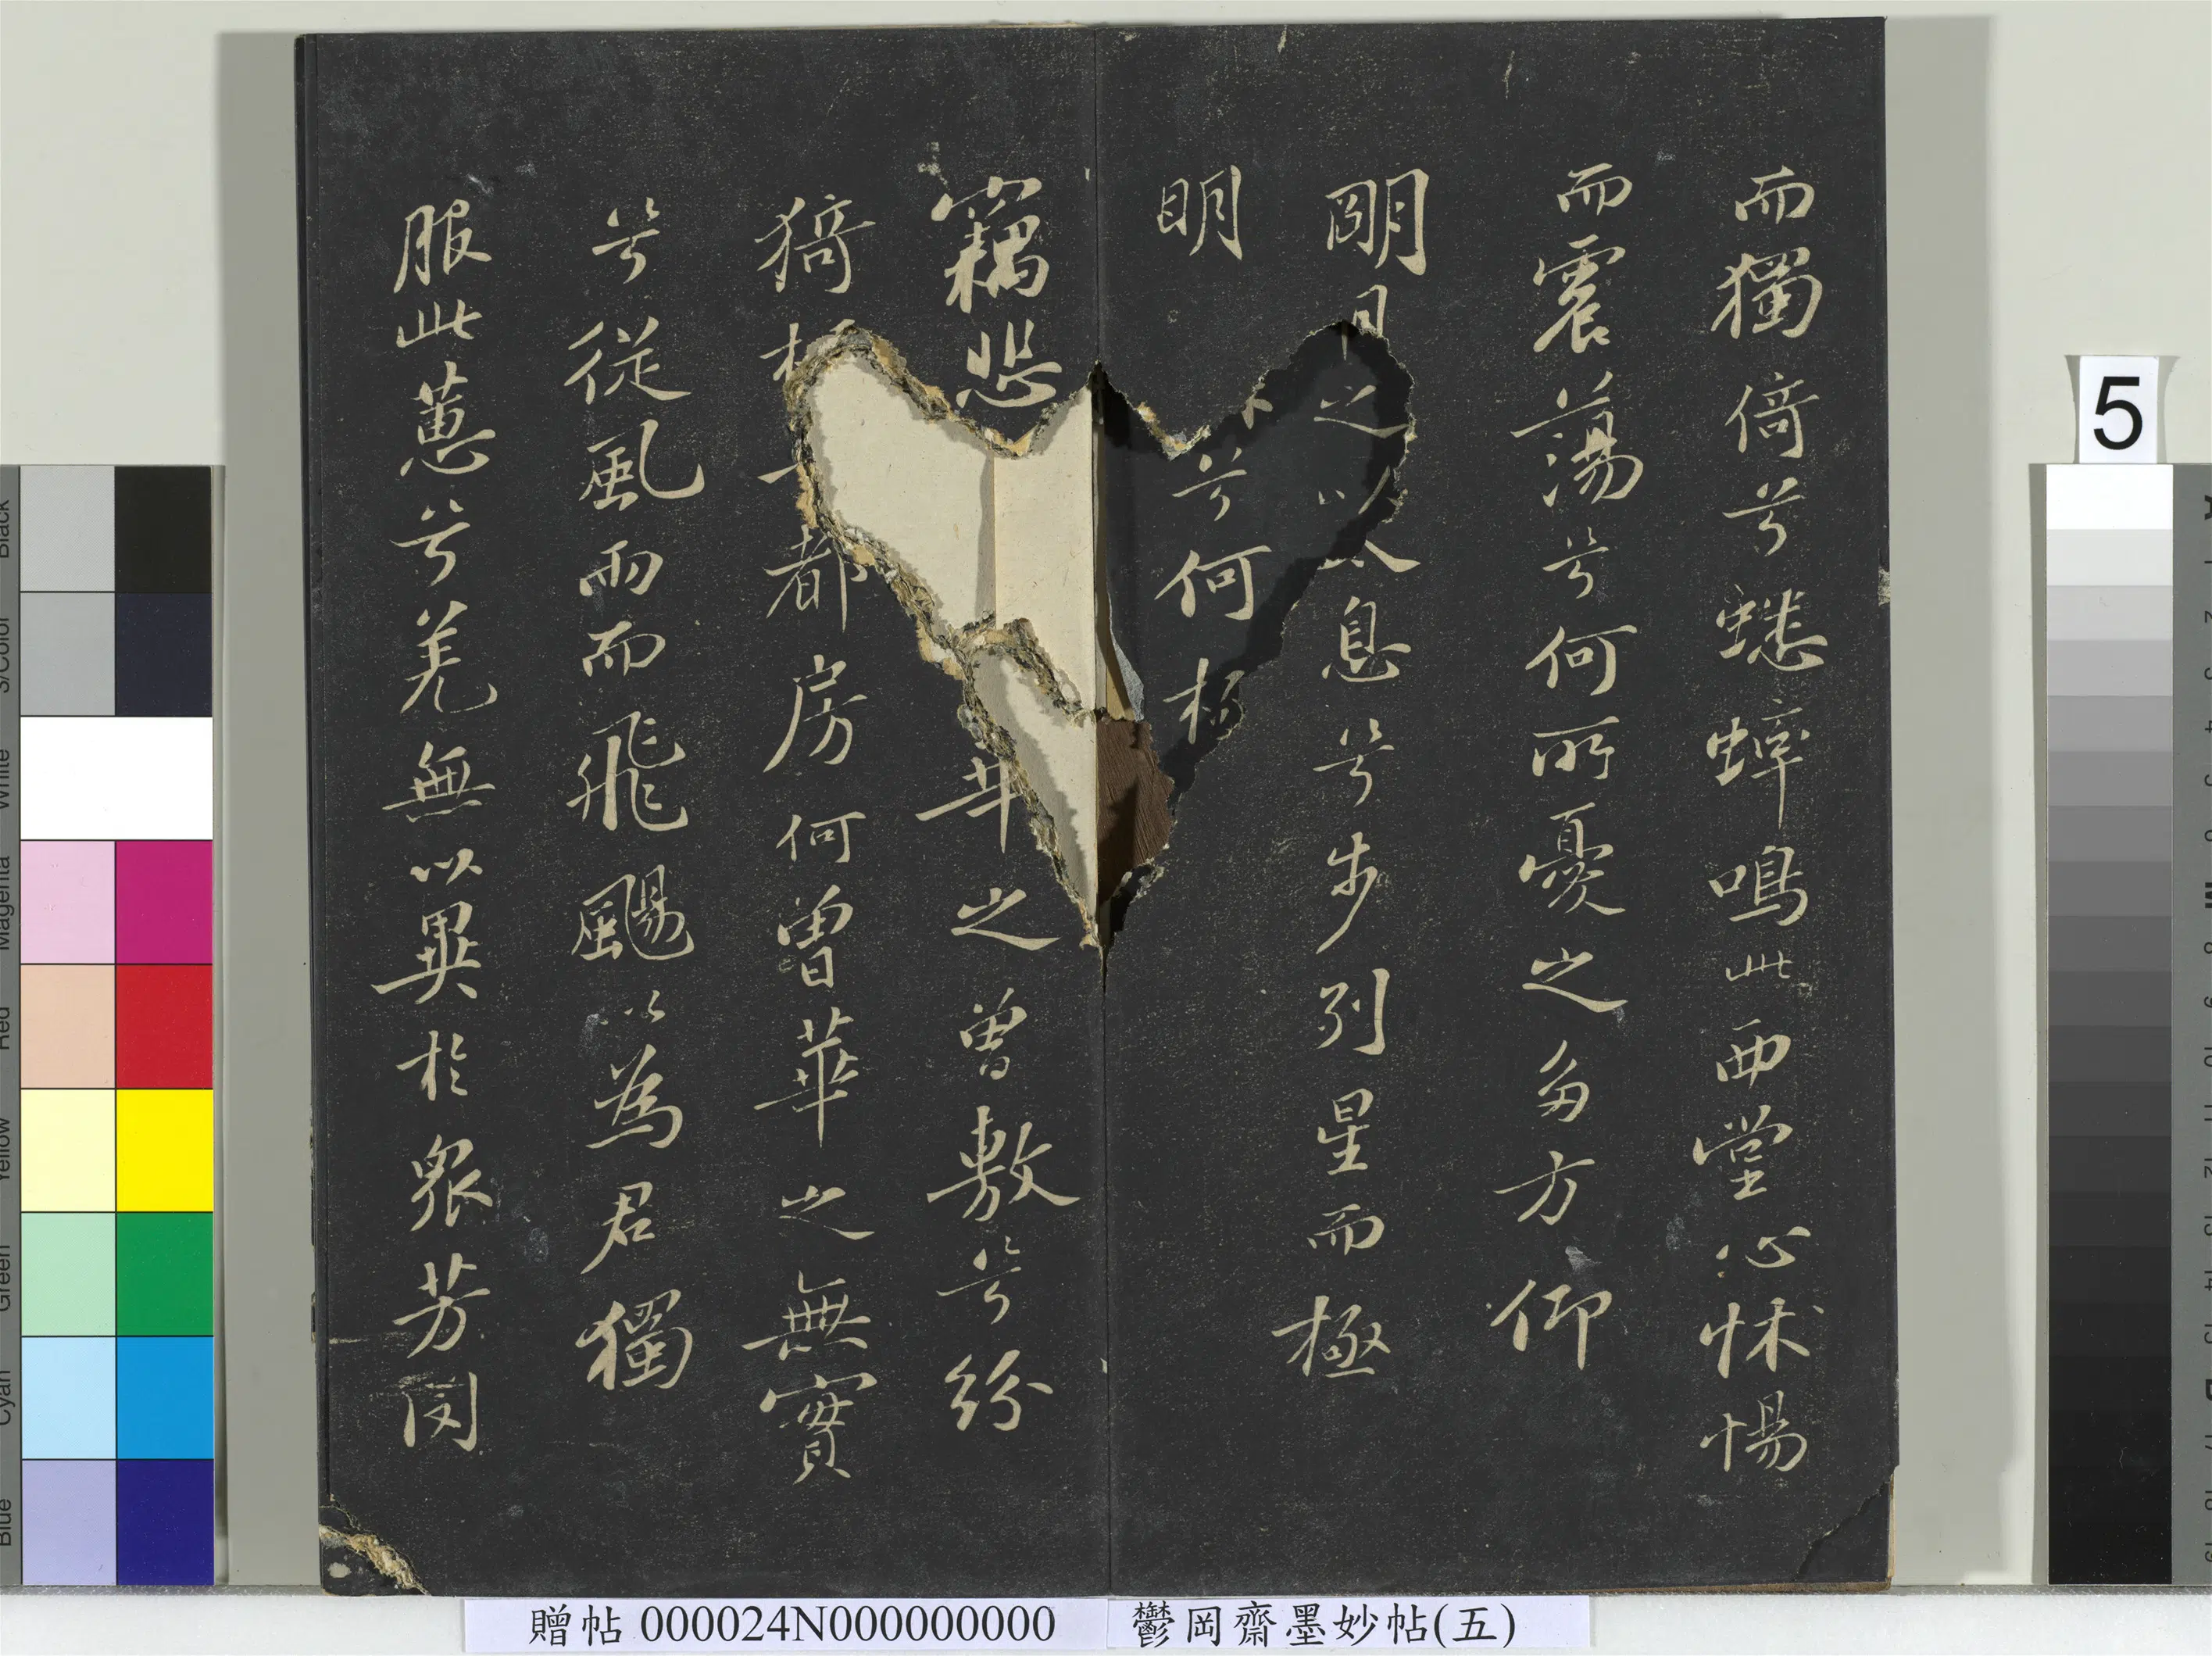 而獨倚兮蟋蟀鳴此西堂心怵惕
而震蕩兮何所憂之多方仰
朙月之以息兮步列星而極
明兮何
竊悲華之曾敷兮紛
猗都房何曾華之無實
兮從風雨而飛颺以為君獨
服此蕙兮羌無以異於眾芳閔
5
贈帖 000024N000000000 鬱岡齋墨妙帖(五)